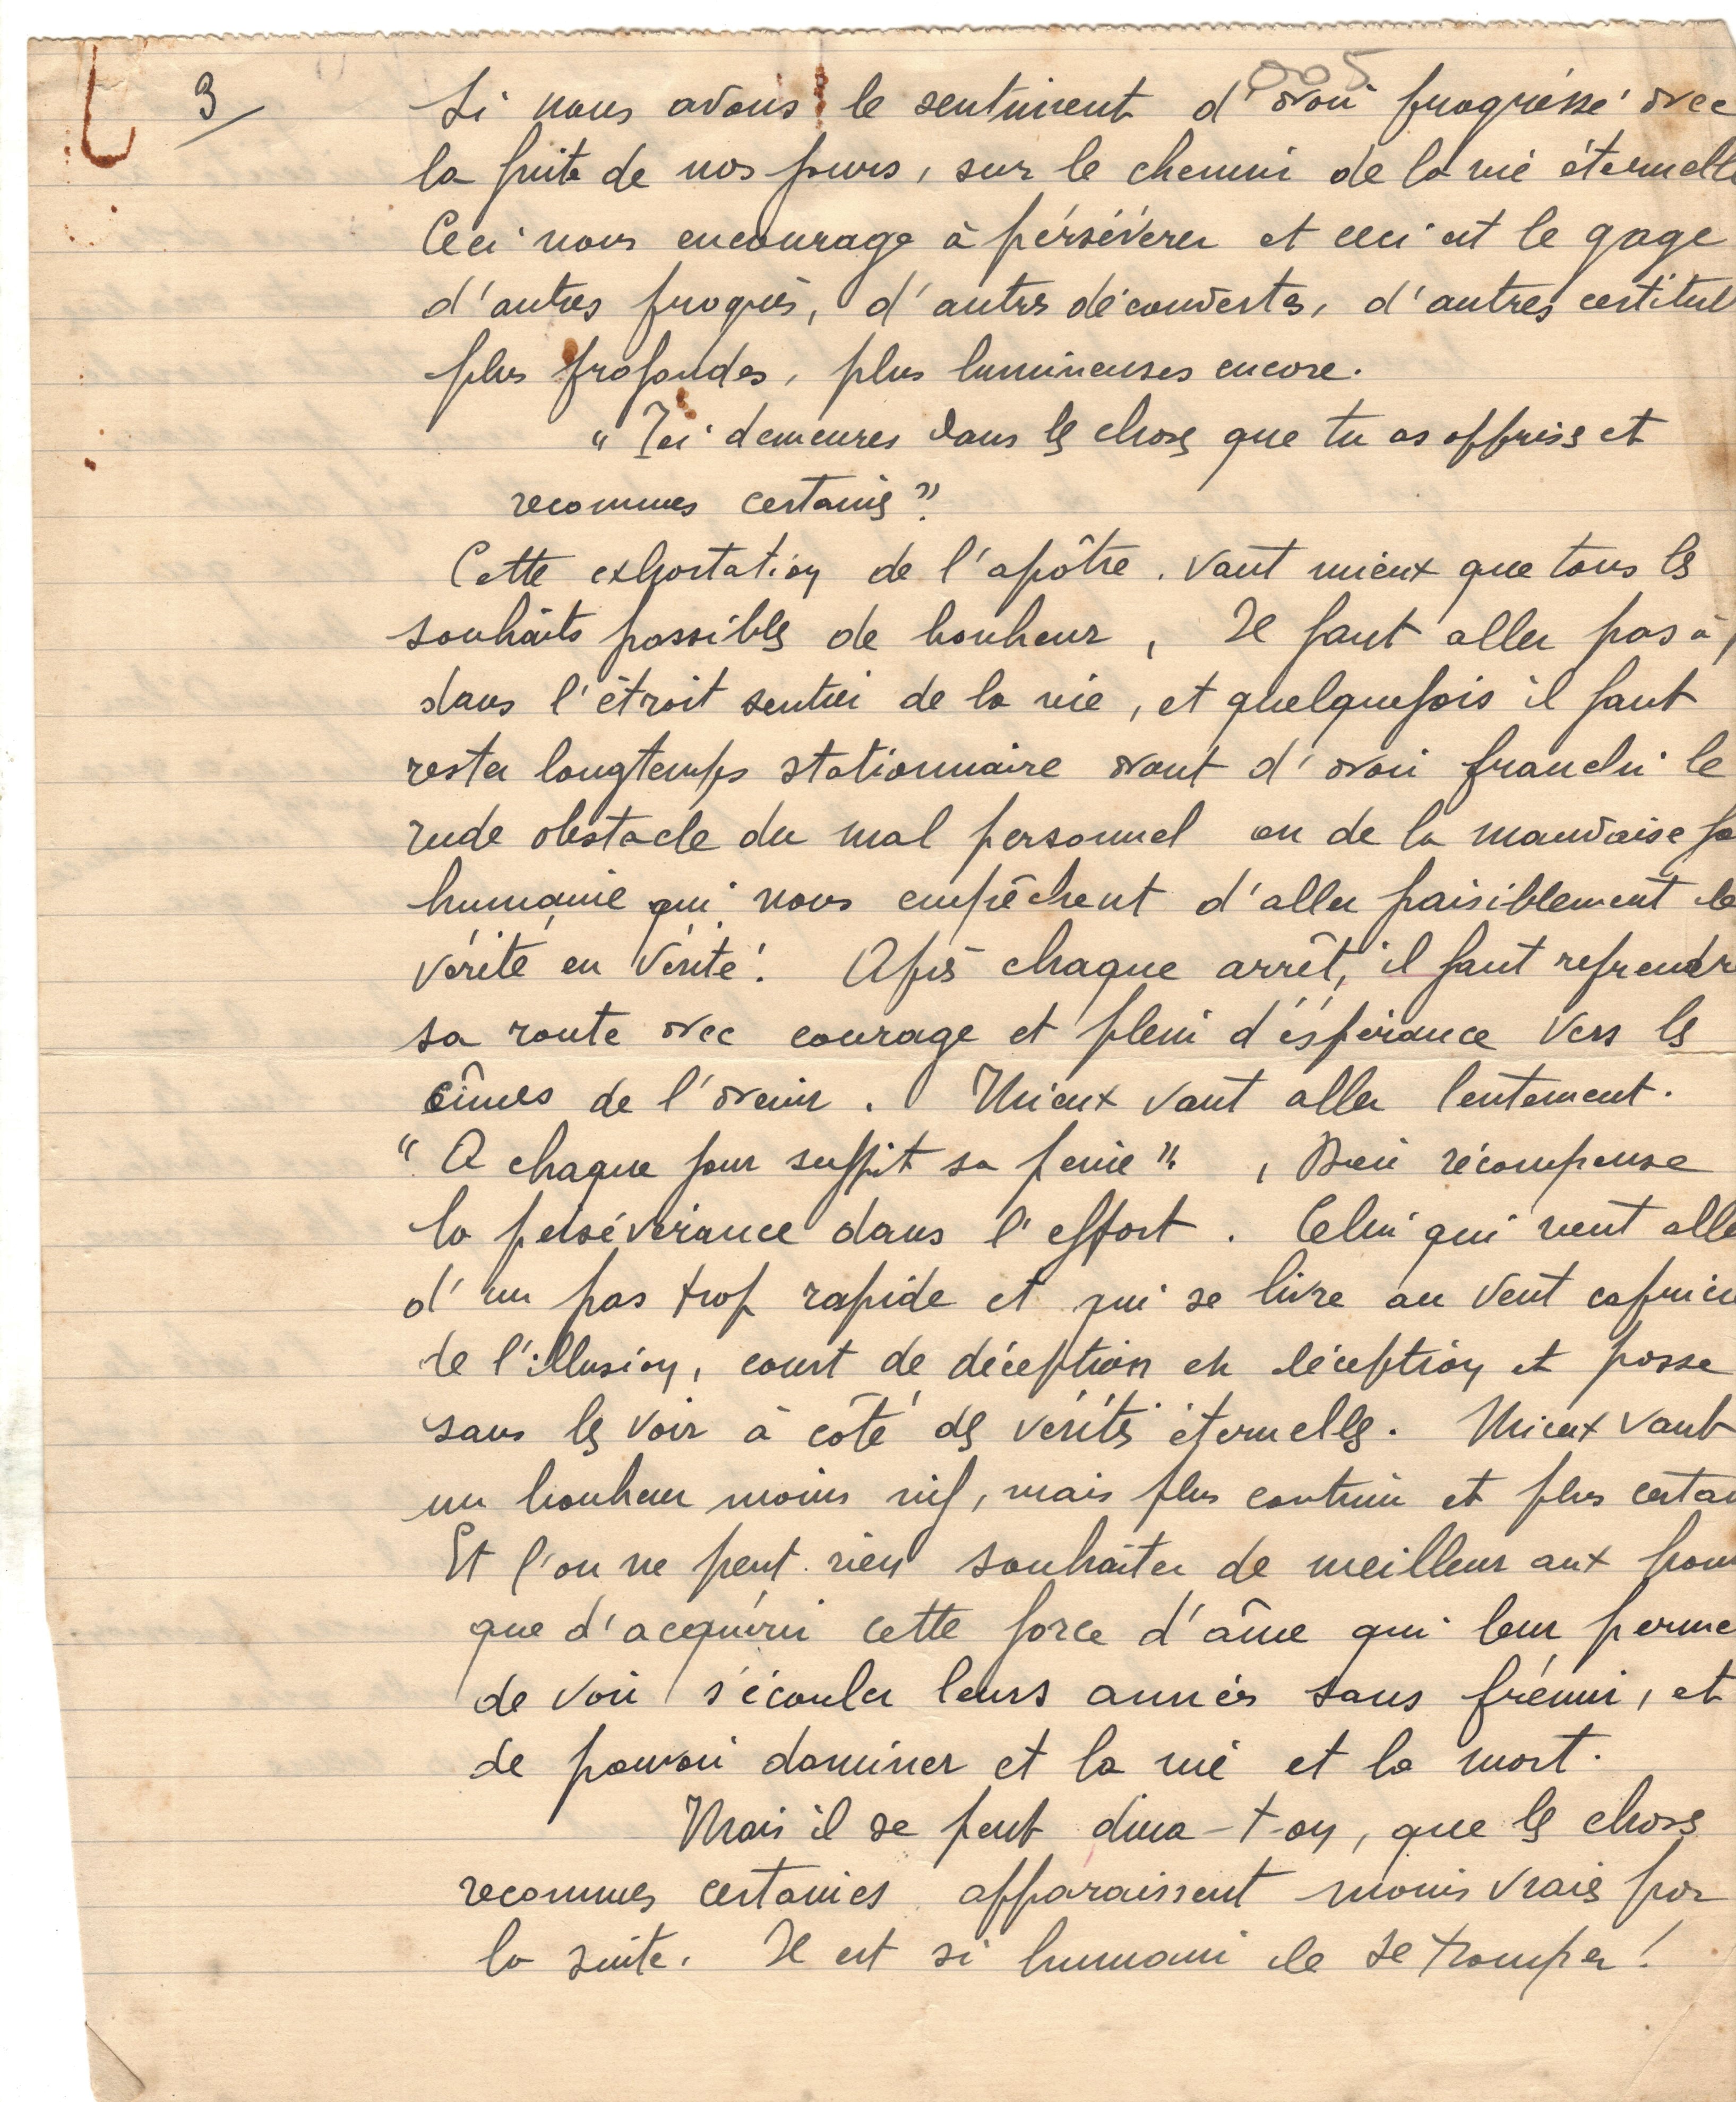 005
3/
Si nous avons le sentiment d'avoir progréssé avec
la fuite de nos jours, sur le chemin de la vie éternelle
Ceci nous encourage à pérsévérer et ceci est le gage
d'autres progrès, d'autres découvertes, d'autres certitud
plus profondes, plus lumineuses encore.
"Toi demeures dans les choses que tu as apprises et
reconnues certaines".
Cette exhortation de l'apôtre. vaut mieux que tous les
souhaits possibles de bonheur, Il faut aller pas à p
dans l'étroit sentier de la vie, et quelquefois il faut
rester longtemps stationnaire avant d'avoir franchi le
rude obstacle du mal personnel ou de la mauvaise fo
humaine qui nous empêchent d'aller paisiblement de
vérité en vérité. Après chaque arrêt, il faut reprendr
sa route avec courage et plein d'éspérance vers les
cîmes de l'avenir. Mieux vaut aller lentement.
"A chaque jour suffit sa peine", Dieu récompense
la persévérance dans l'effort. Celui qui veut alle
d'un pas trop rapide et qui se livre au vent capricie
de l'illusion, court de déception en déception et passe
sans les voir à côté des vérités éternelles. Mieux vaut
un bonheur moins vif, mais plus continu et plus certai
Et l'on ne peut rien souhaiter de meilleur aux hom
que d'acquérir cette force d'âme qui leur perme
de voir s'écouler leurs années sans frémir, et
de pouvoir dominer et la vie et la mort.
Mais il se peut dira-t-on, que les choses
reconnues certaines apparaissent moins vraies par
la suite. Il est si humain de se tromper!